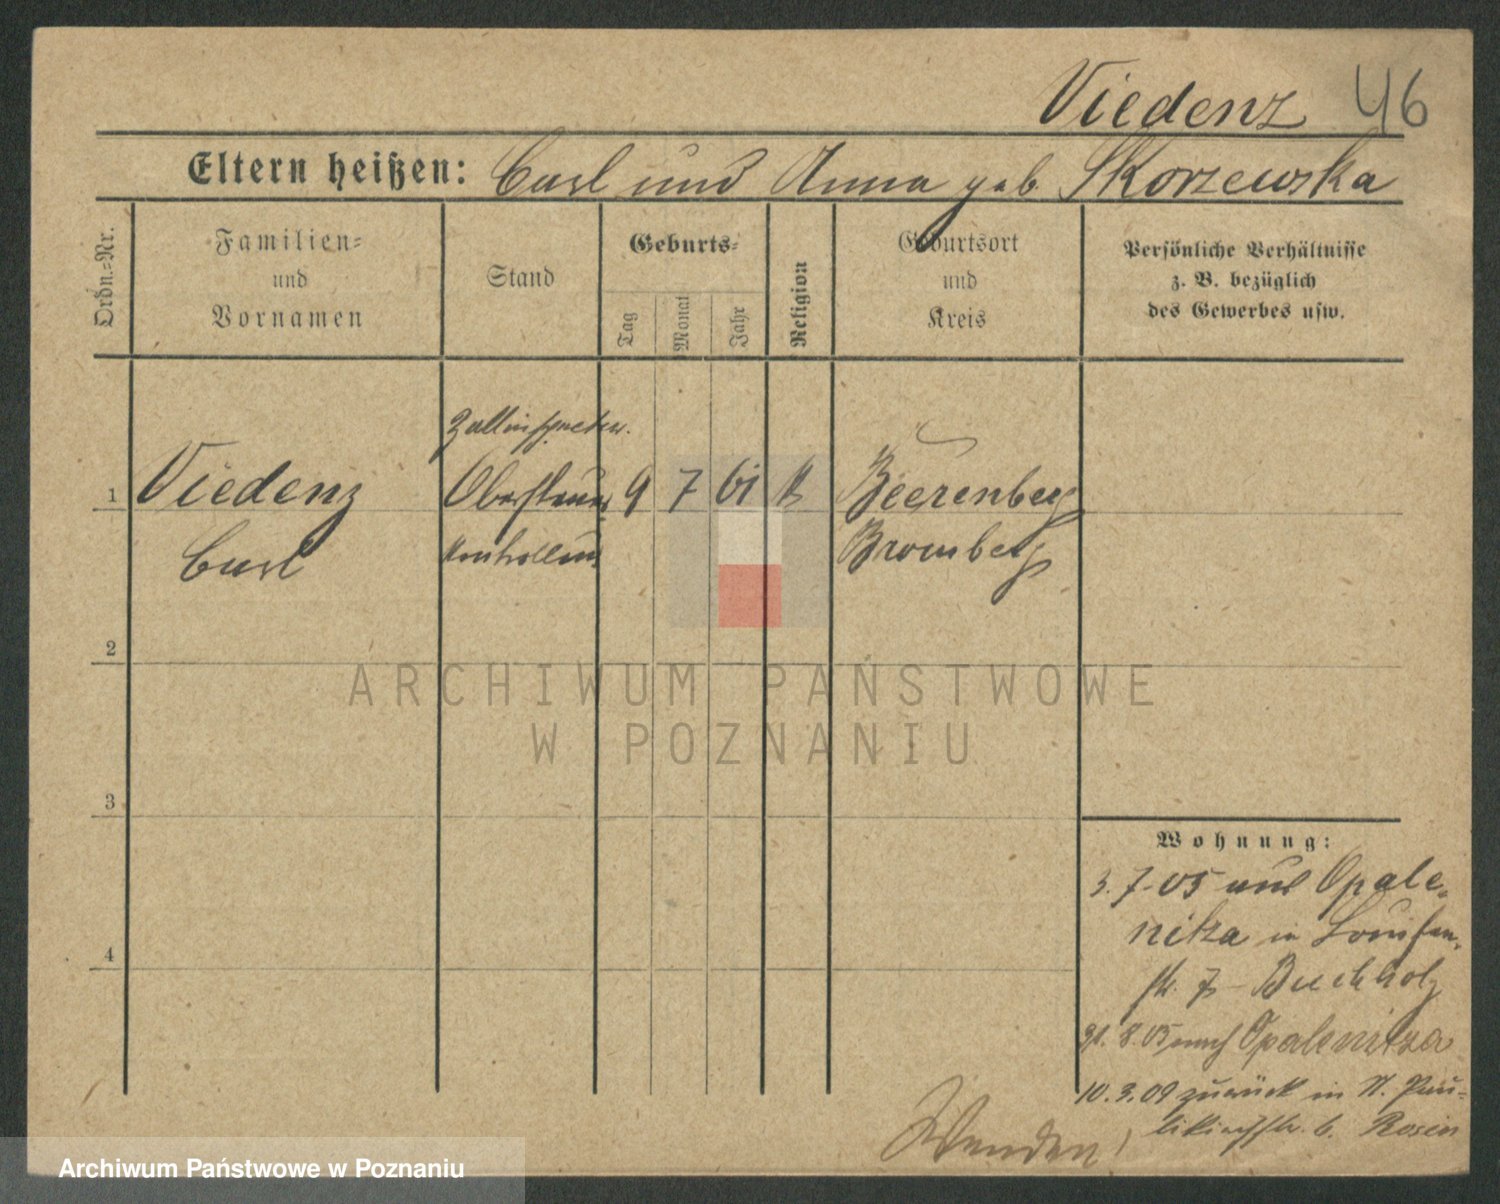 Viedenz 46
Eltern heißen: Carl und Anna geb Skorzewska
Ordn.=Nr.
Familien=
und
Vornamen
Stand
Geburts=
Tag
Monat
Jahr
Religion
Geburtsort
und
Kreis
Persönliche Verhältnisse
z. B. bezüglich
des Gewerbes usw.
Zollinspektor.
1 Viedenz Obersteuer 9 7 61 k Beerenberg
Carl Kontrolleur Bromberg
2
3
4
Wohnung:
3.7.05 aus Opale=
nitza in Louisen
str. 7 Buchholz
31.8.05 nach Opalenitza
10.3.09 zurück in N. Pau=
likirchstr. 6. Rosen
Wenden!
ARCHIWUM PAŃSTWOWE
W POZNANIU
Archiwum Państwowe w Poznaniu